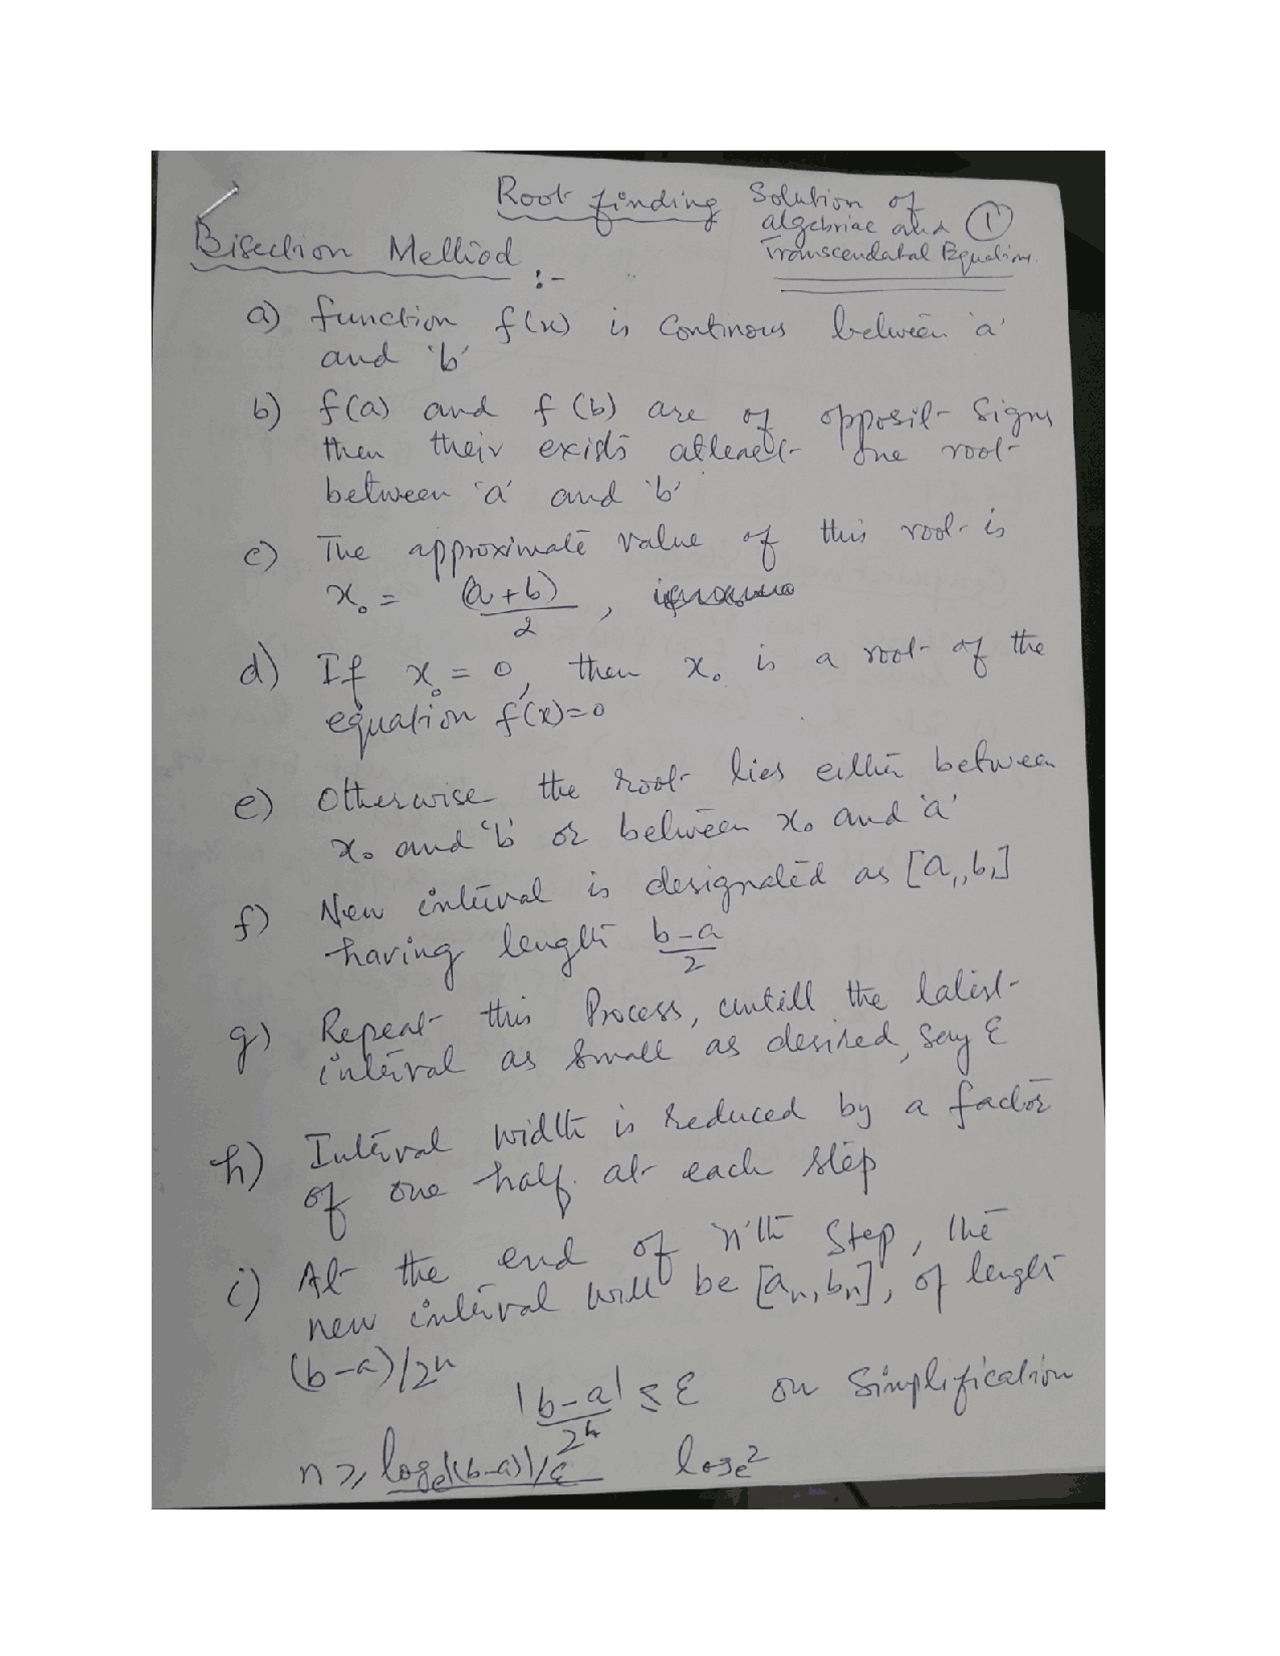 Root finding Solution of
algebriac and 1
Transcendatal Equations.
Bisection Method :-
a) function f(x) is Continous between 'a'
and 'b'
b) f(a) and f(b) are of opposit Signs
then their exists atleast one root
between 'a' and 'b'
c) The approximate value of this root is
x₀ = (a+b)/2 ,
d) If x₀ = 0, then x₀ is a root of the
equation f(x)=0
e) Otherwise the root lies either between
x₀ and 'b' or between x₀ and 'a'
f) New interval is designated as [a₁, b₁]
having length b-a/2
g) Repeat this Process, untill the latest
interval as small as desired, say ε
h) Interval width is reduced by a factor
of one half. at each step
i) At the end of 'n'th Step, the
new interval will be [aₙ, bₙ], of length
(b-a)/2n
|b-a|/2ⁿ ≤ ε on Simplification
n ≥ logₑ(|(b-a)|/ε logₑ2